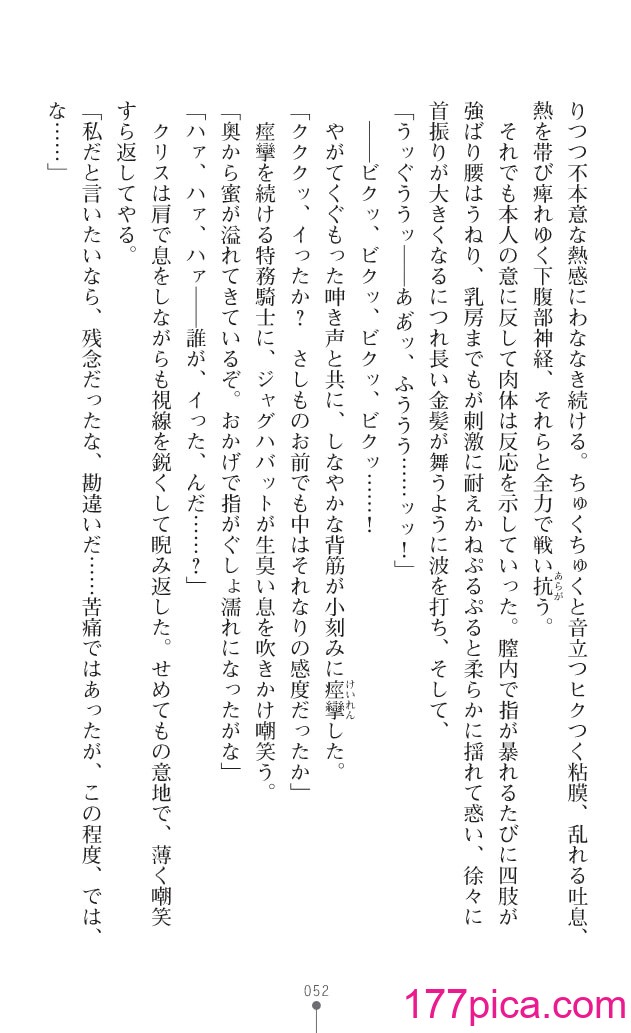 りつつ不本意な熱感にわななき続ける。ちゅくちゅくと音立つヒクつく粘膜、乱れる吐息、
熱を帯び痺れゆく下腹部神経、それらと全力で戦い抗う。
あらが
それでも本人の意に反して肉体は反応を示していった。膣内で指が暴れるたびに四肢が
強ばり腰はうねり、乳房までもが刺激に耐えかねぷるぷると柔らかに揺れて惑い、徐々に
首振りが大きくなるにつれ長い金髪が舞うように波を打ち、そして、
「うッぐううッ――あぁッ、ふううう……ッッ！」
――ビクッ、ビクッ、ビクッ、ビクッ……！
やがてくぐもった呻き声と共に、しなやかな背筋が小刻みに痙攣した。
けいれん
「クククッ、イったか？　さしものお前でも中はそれなりの感度だったか」
痙攣を続ける特務騎士に、ジャグハバットが生臭い息を吹きかけ嘲笑う。
「奥から蜜が溢れてきているぞ。おかげで指がぐしょ濡れになったがな」
「ハァ、ハァ、ハァ――誰が、イった、んだ……？」
クリスは肩で息をしながらも視線を鋭くして睨み返した。せめてもの意地で、薄く嘲笑
すら返してやる。
「私だと言いたいなら、残念だったな、勘違いだ……苦痛ではあったが、この程度、では、
な……」
052
177pica.com